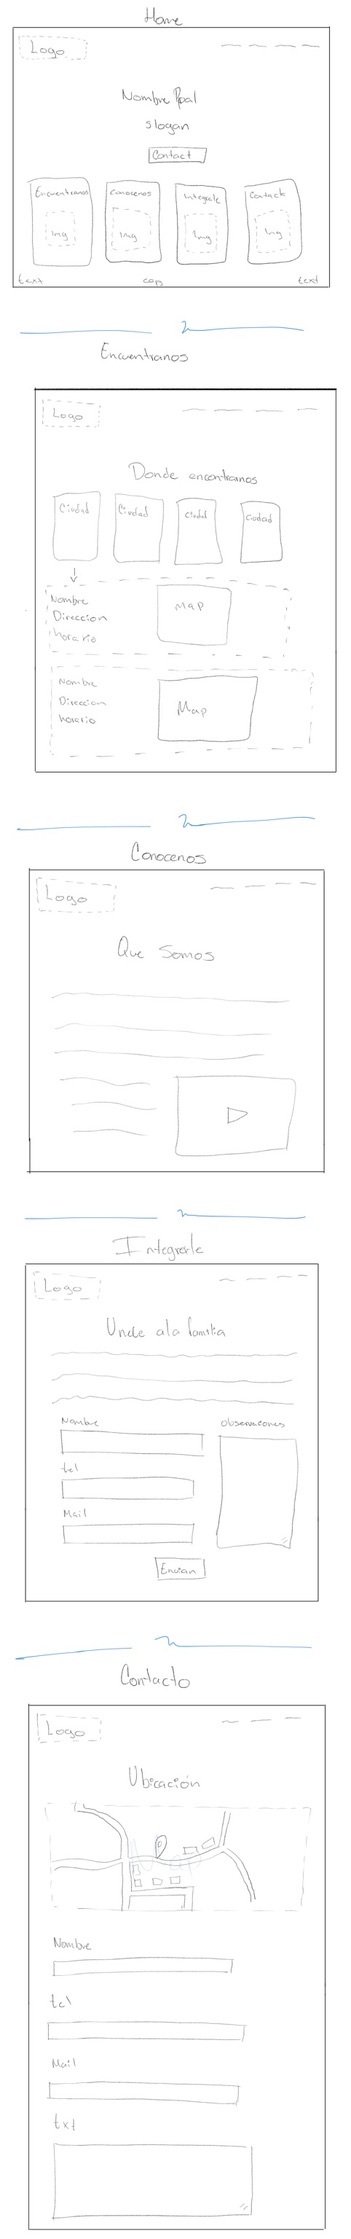 Home
Logo
Nombre Ppal
slogan
Contact
Encuentranos Conocenos Integrate Contacto
Img Img Img Img
text copy text
Encuentranos
Logo
Donde encontranos
Ciudad Ciudad Ciudad Ciudad
Nombre
Direccion
horario
Map
Nombre
Direccion
horario
Map
Conocenos
Logo
Que Somos
Integrate
Logo
Unete ala familia
Nombre
Observaciones
tel
Mail
Enviar
Contacto
Logo
Ubicación
Nombre
tel
Mail
txt